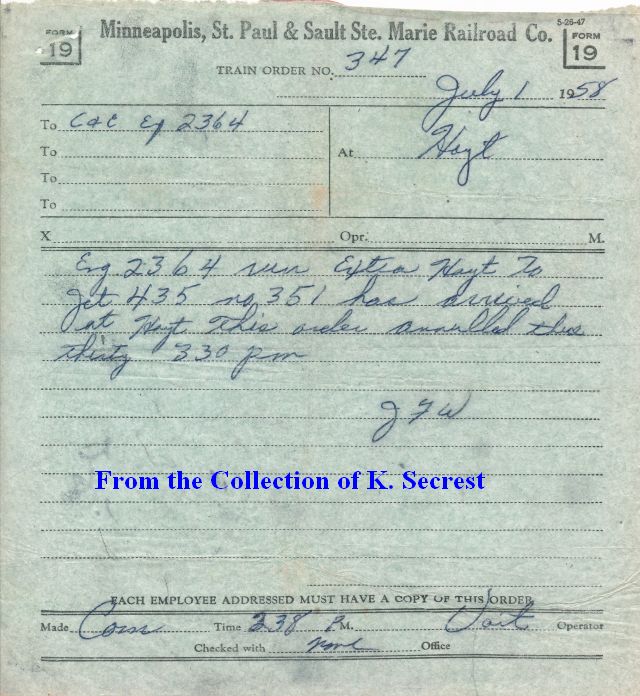 FORM 19
Minneapolis, St. Paul & Sault Ste. Marie Railroad Co.
5-26-47
FORM 19
TRAIN ORDER NO. 347
July 1 1958
To C&E Eg 2364
To
To
To
At Hoyt
X Opr. M.
Eng 2364 run Extra Hoyt To
Jct 435 no 351 has arrived
at Hoyt This order annulled three
thirty 330 pm
J F W
From the Collection of K. Secrest
EACH EMPLOYEE ADDRESSED MUST HAVE A COPY OF THIS ORDER
Made Com Time 238 P M. Voit Operator
Checked with Office